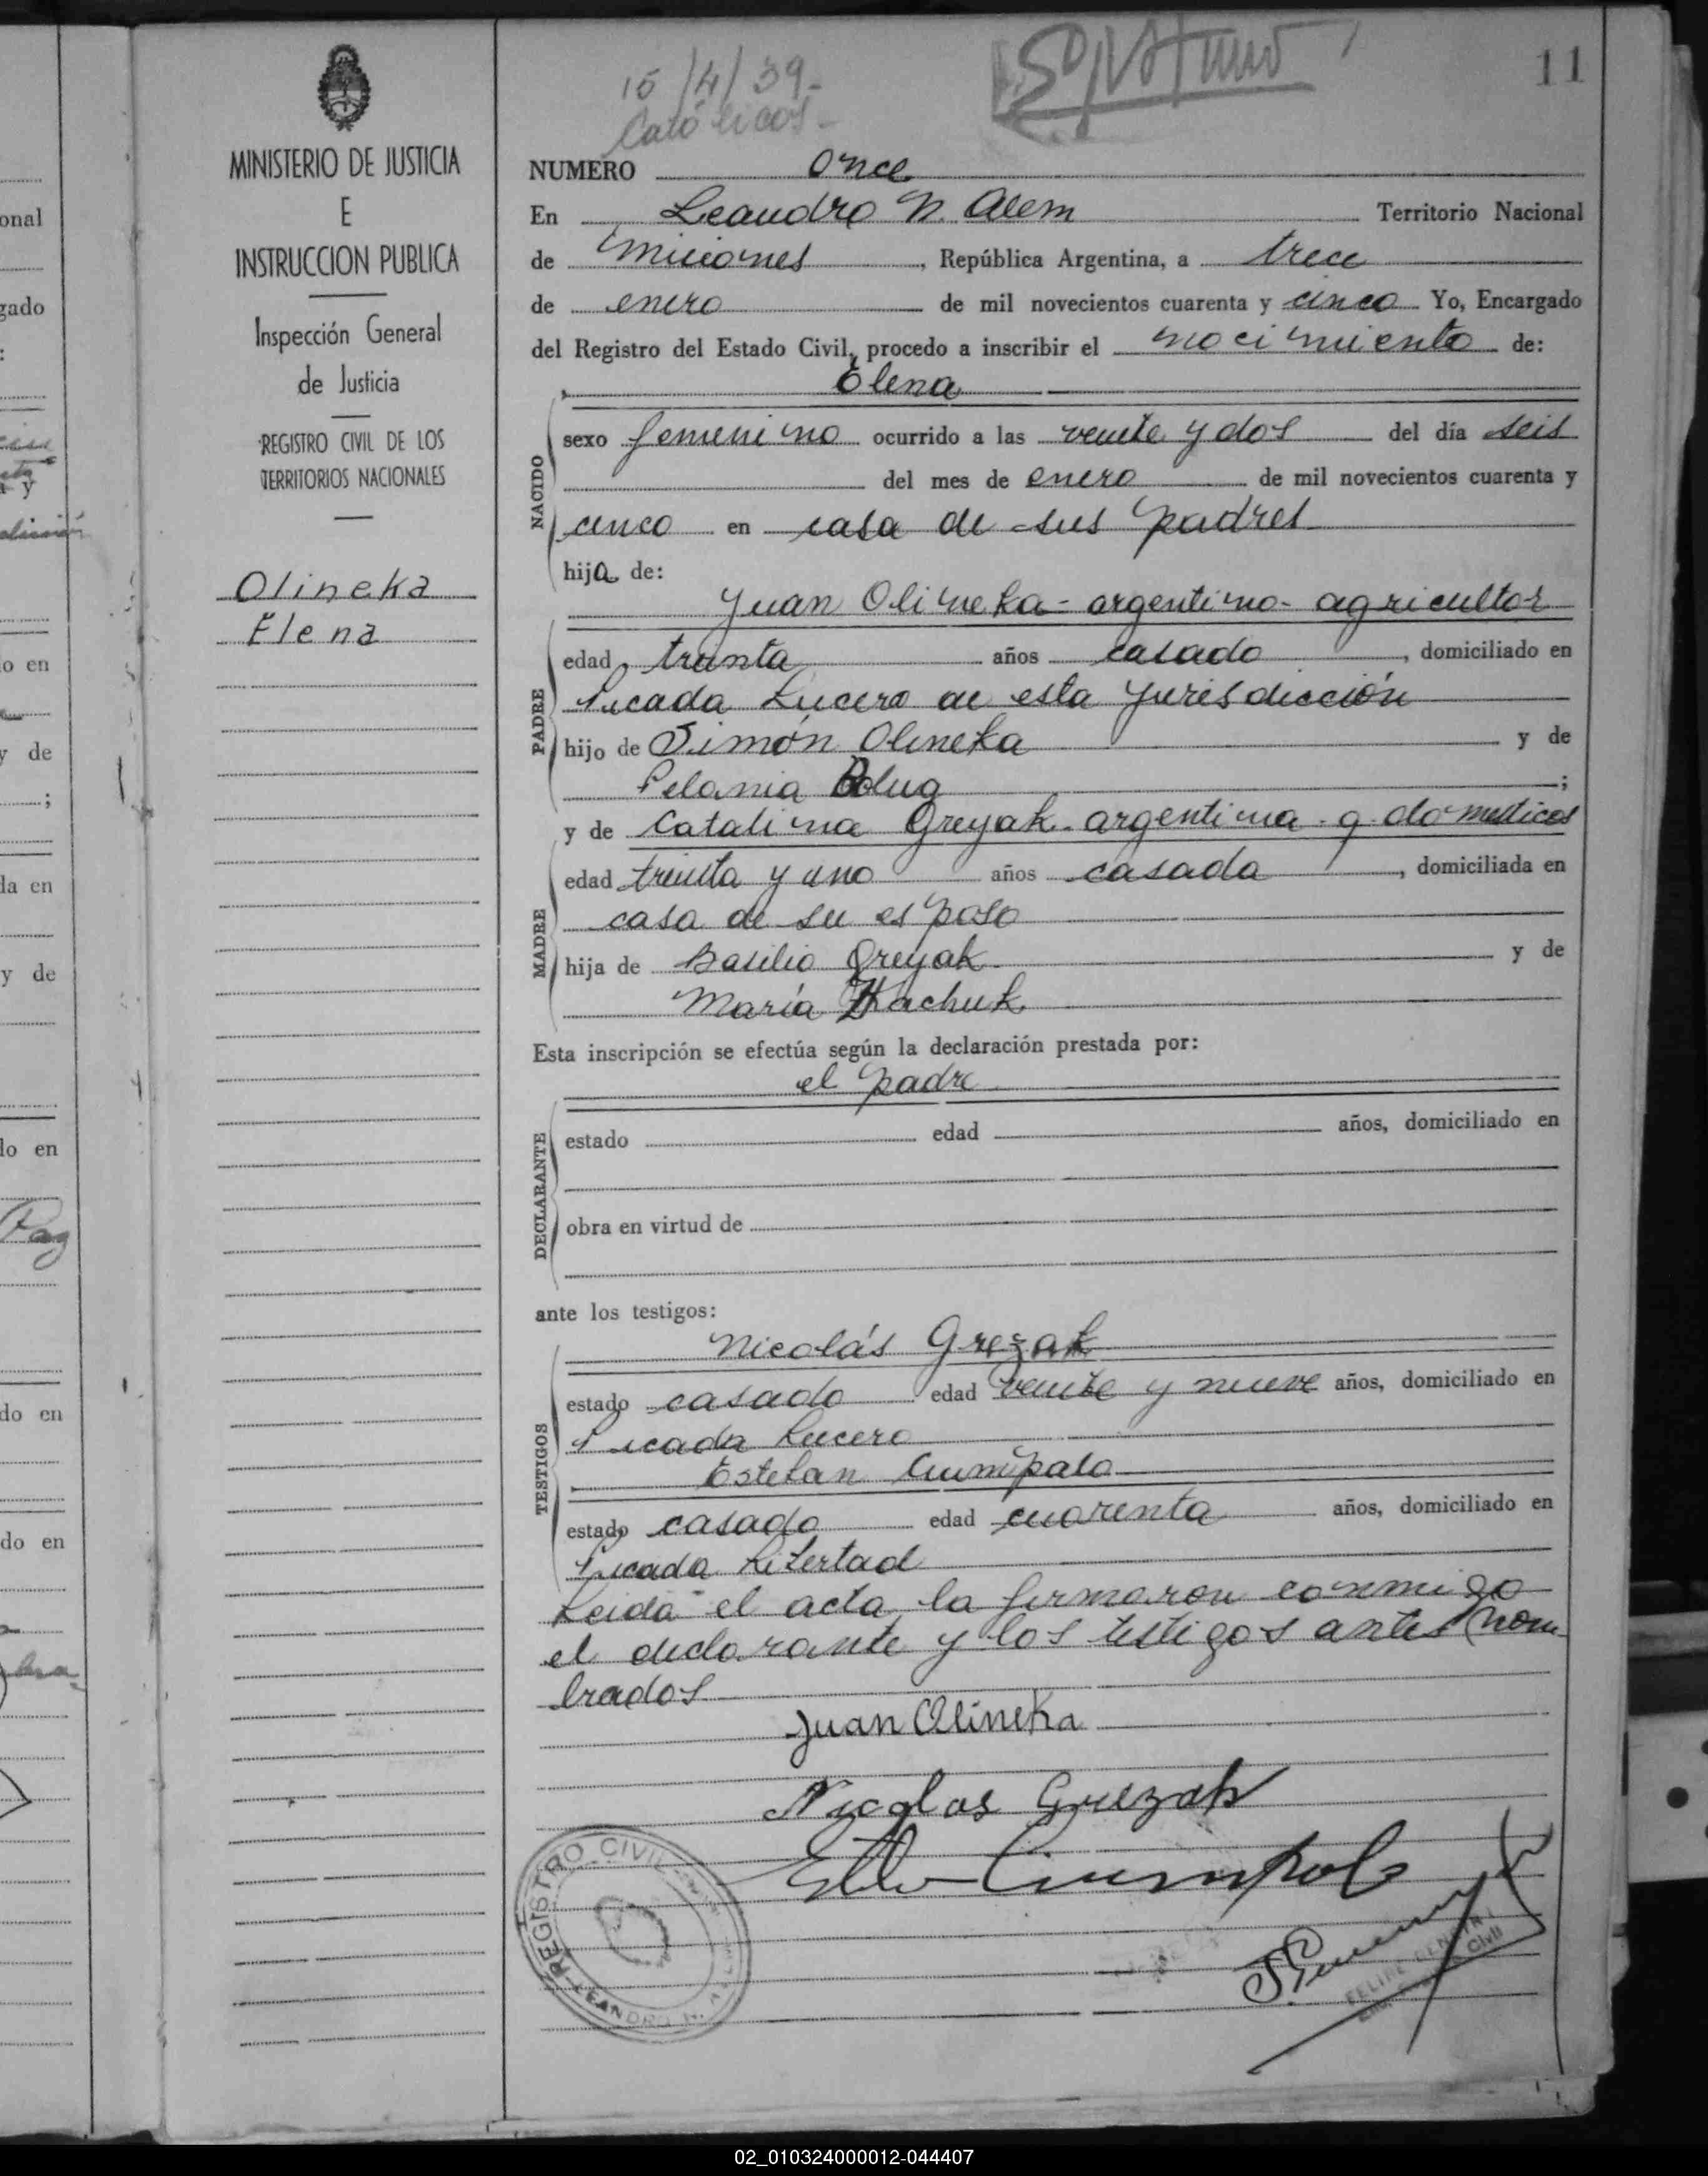 11
15/4/39-
Católicos-
MINISTERIO DE JUSTICIA
E
INSTRUCCION PUBLICA
Inspección General
de Justicia
REGISTRO CIVIL DE LOS
TERRITORIOS NACIONALES
Olineka
Elena
NUMERO once
En Leandro N. Alem Territorio Nacional
de Misiones, República Argentina, a trece
de enero de mil novecientos cuarenta y cinco Yo, Encargado
del Registro del Estado Civil, procedo a inscribir el nacimiento de:
Elena
NACIDO
sexo femenino ocurrido a las veinte y dos del día seis
del mes de enero de mil novecientos cuarenta y
cinco en casa de sus padres
hija de:
Juan Olineka - argentino - agricultor
PADRE
edad, treinta años casado, domiciliado en
Picada Lucero de esta jurisdicción
hijo de Simón Olineka y de
Pelania Bolug;
y de Catalina Greyak - argentina - q. domesticos
MADRE
edad treinta y uno años casada, domiciliada en
casa de su esposo
hija de Basilio Greyak y de
María Tkachuk
Esta inscripción se efectúa según la declaración prestada por:
el padre
DECLARANTE
estado edad años, domiciliado en
obra en virtud de
ante los testigos:
Nicolás Grezak
TESTIGOS
estado casado edad veinte y nueve años, domiciliado en
Picada Lucero
Esteban Ciumpalo
estado casado edad cuarenta años, domiciliado en
Picada Libertad
Leida el acta, la firmaron conmigo
el declarante y los testigos antes nom-
brados
Juan Olineka
Nicolas Grezak
REGISTRO CIVIL
LEANDRO N.
FELIPE
Civil
02_010324000012-044407